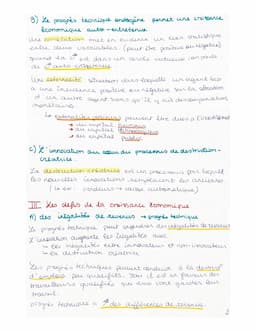 B) Le progrès technique endogène permet une croissance
économique auto-entretenue.
Une corrélation met en évidence un lien statistique
entre deux variables. (peut être positive ou négative)
quand la c° est dans un cercle vertueux on parle
de c° auto-entretenue
Une externalité : situation dans laquelle un agent éco
a une incidence positive ou négative sur la situation
d'un autre agent sans qu'il y ait de compensation
monétaire.
Les externalités positives peuvent être dues à l'investissement
→ du capital humain
→ du capital technologique
→ du capital public
C) L'innovation au cœur du processus de destruction-
créatrice.
La destruction créatrice est un processus par lequel
les nouvelles innovations remplacent les anciennes
III Les défis de la croissance économique
A) des inégalités de revenus → progrès technique
Le progrès technique peut engendrer des inégalités de revenus
L'innovation augmente les inégalités avec
→ les inégalités entre innovateurs et non-innovateurs
→ la destruction créatrice
Les progrès techniques peuvent conduire à la
d'emplois peu qualifiés. Donc il est en faveur des
travailleurs qualifiés qui eux vont garder leur
travail.
progrès technique = des différences de revenus.